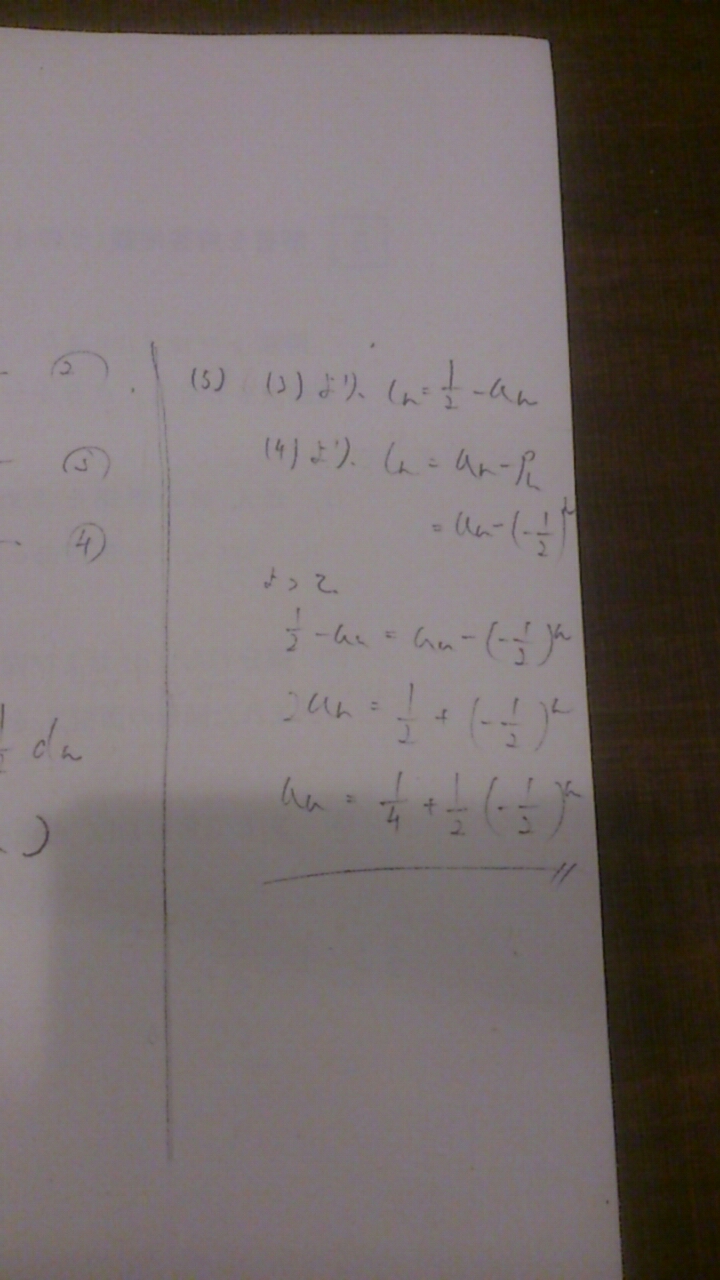 - ②
- ③
- ④
1/2 dn
)
(5) (3)より、Cn = 1/2 - an
(4)より、Cn = an - Pn
= an - (-1/2)^n
よって
1/2 - an = an - (-1/2)^n
2an = 1/2 + (-1/2)^n
an = 1/4 + 1/2 (-1/2)^n